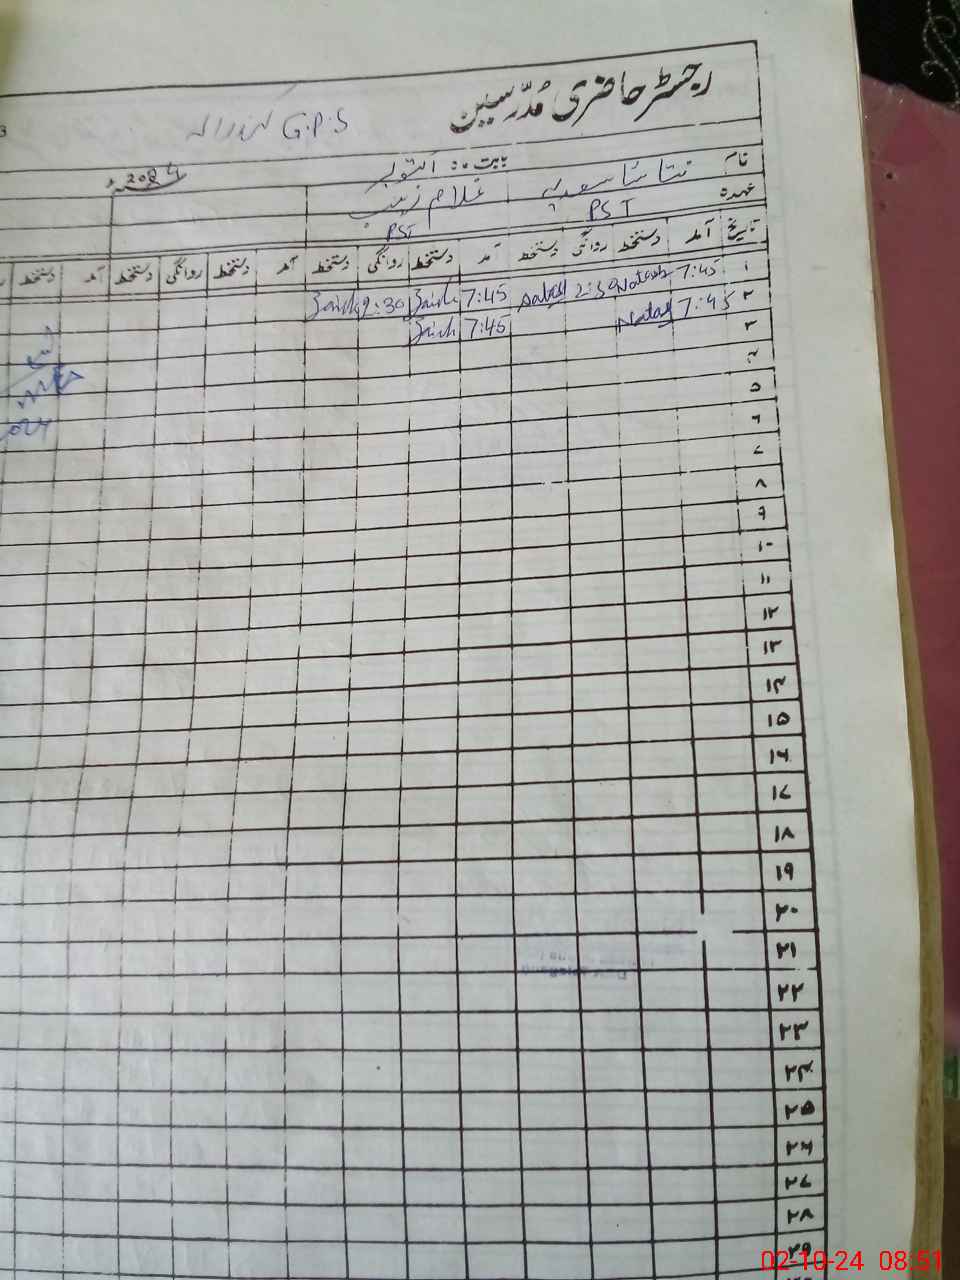 رجسٹر حاضری مُدرّسین
G.P.S
بابت ماہ اکتوبر 2024ء
نام نتاشا سعدیہ غلام زینب
عہدہ PST PST
تاریخ آمد دستخط روانگی دستخط آمد دستخط روانگی دستخط آمد دستخط روانگی دستخط آمد دستخط
۱ 7:45 Natash 2:30 Natash 7:45 Zainb 2:30 Zainb
۲ 7:45 Natash 7:45 Zainb
۳
۴
۵
۶
۷
۸
۹
۱۰
۱۱
۱۲
۱۳
۱۴
۱۵
۱۶
۱۷
۱۸
۱۹
۲۰
۲۱
۲۲
۲۳
۲۴
۲۵
۲۶
۲۷
۲۸
۲۹
02-10-24 08:51